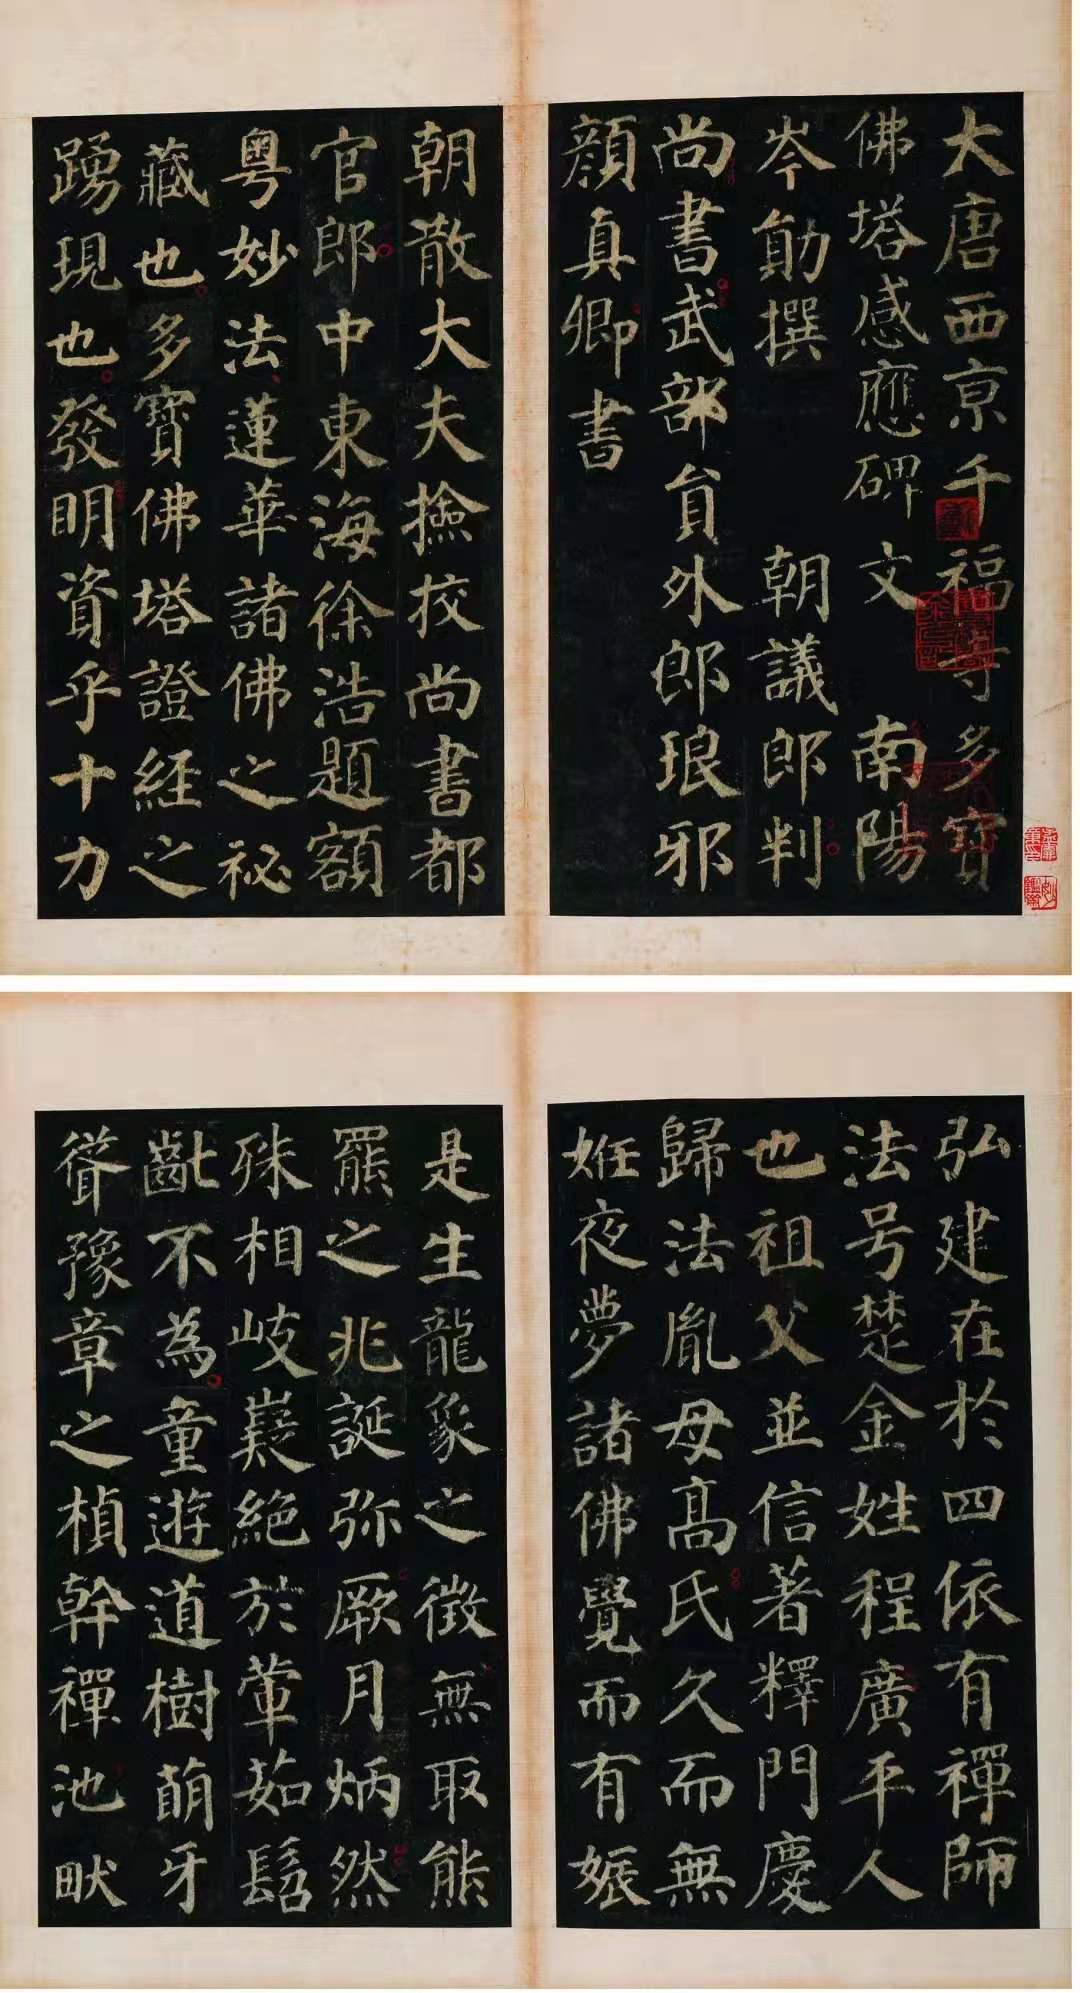 大唐西京千福寺多寶
佛塔感應碑文南陽
岑勛撰朝議郎判
尚書武部貟外郎琅邪
顏真卿書
朝散大夫撿挍尚書都
官郎中東海徐浩題額
粵妙法蓮華諸佛之祕
藏也多寶佛塔證經之
踴現也發明資乎十力
弘建在於四依有禪師
法号楚金姓程廣平人
也祖父並信著釋門慶
歸法胤母高氏久而無
姙夜夢諸佛覺而有娠
是生龍象之徵無取熊
羆之兆誕弥厥月炳然
殊相岐嶷絕於葷茹髫
齓不為童遊道樹萌牙
聳豫章之楨幹禪池畎